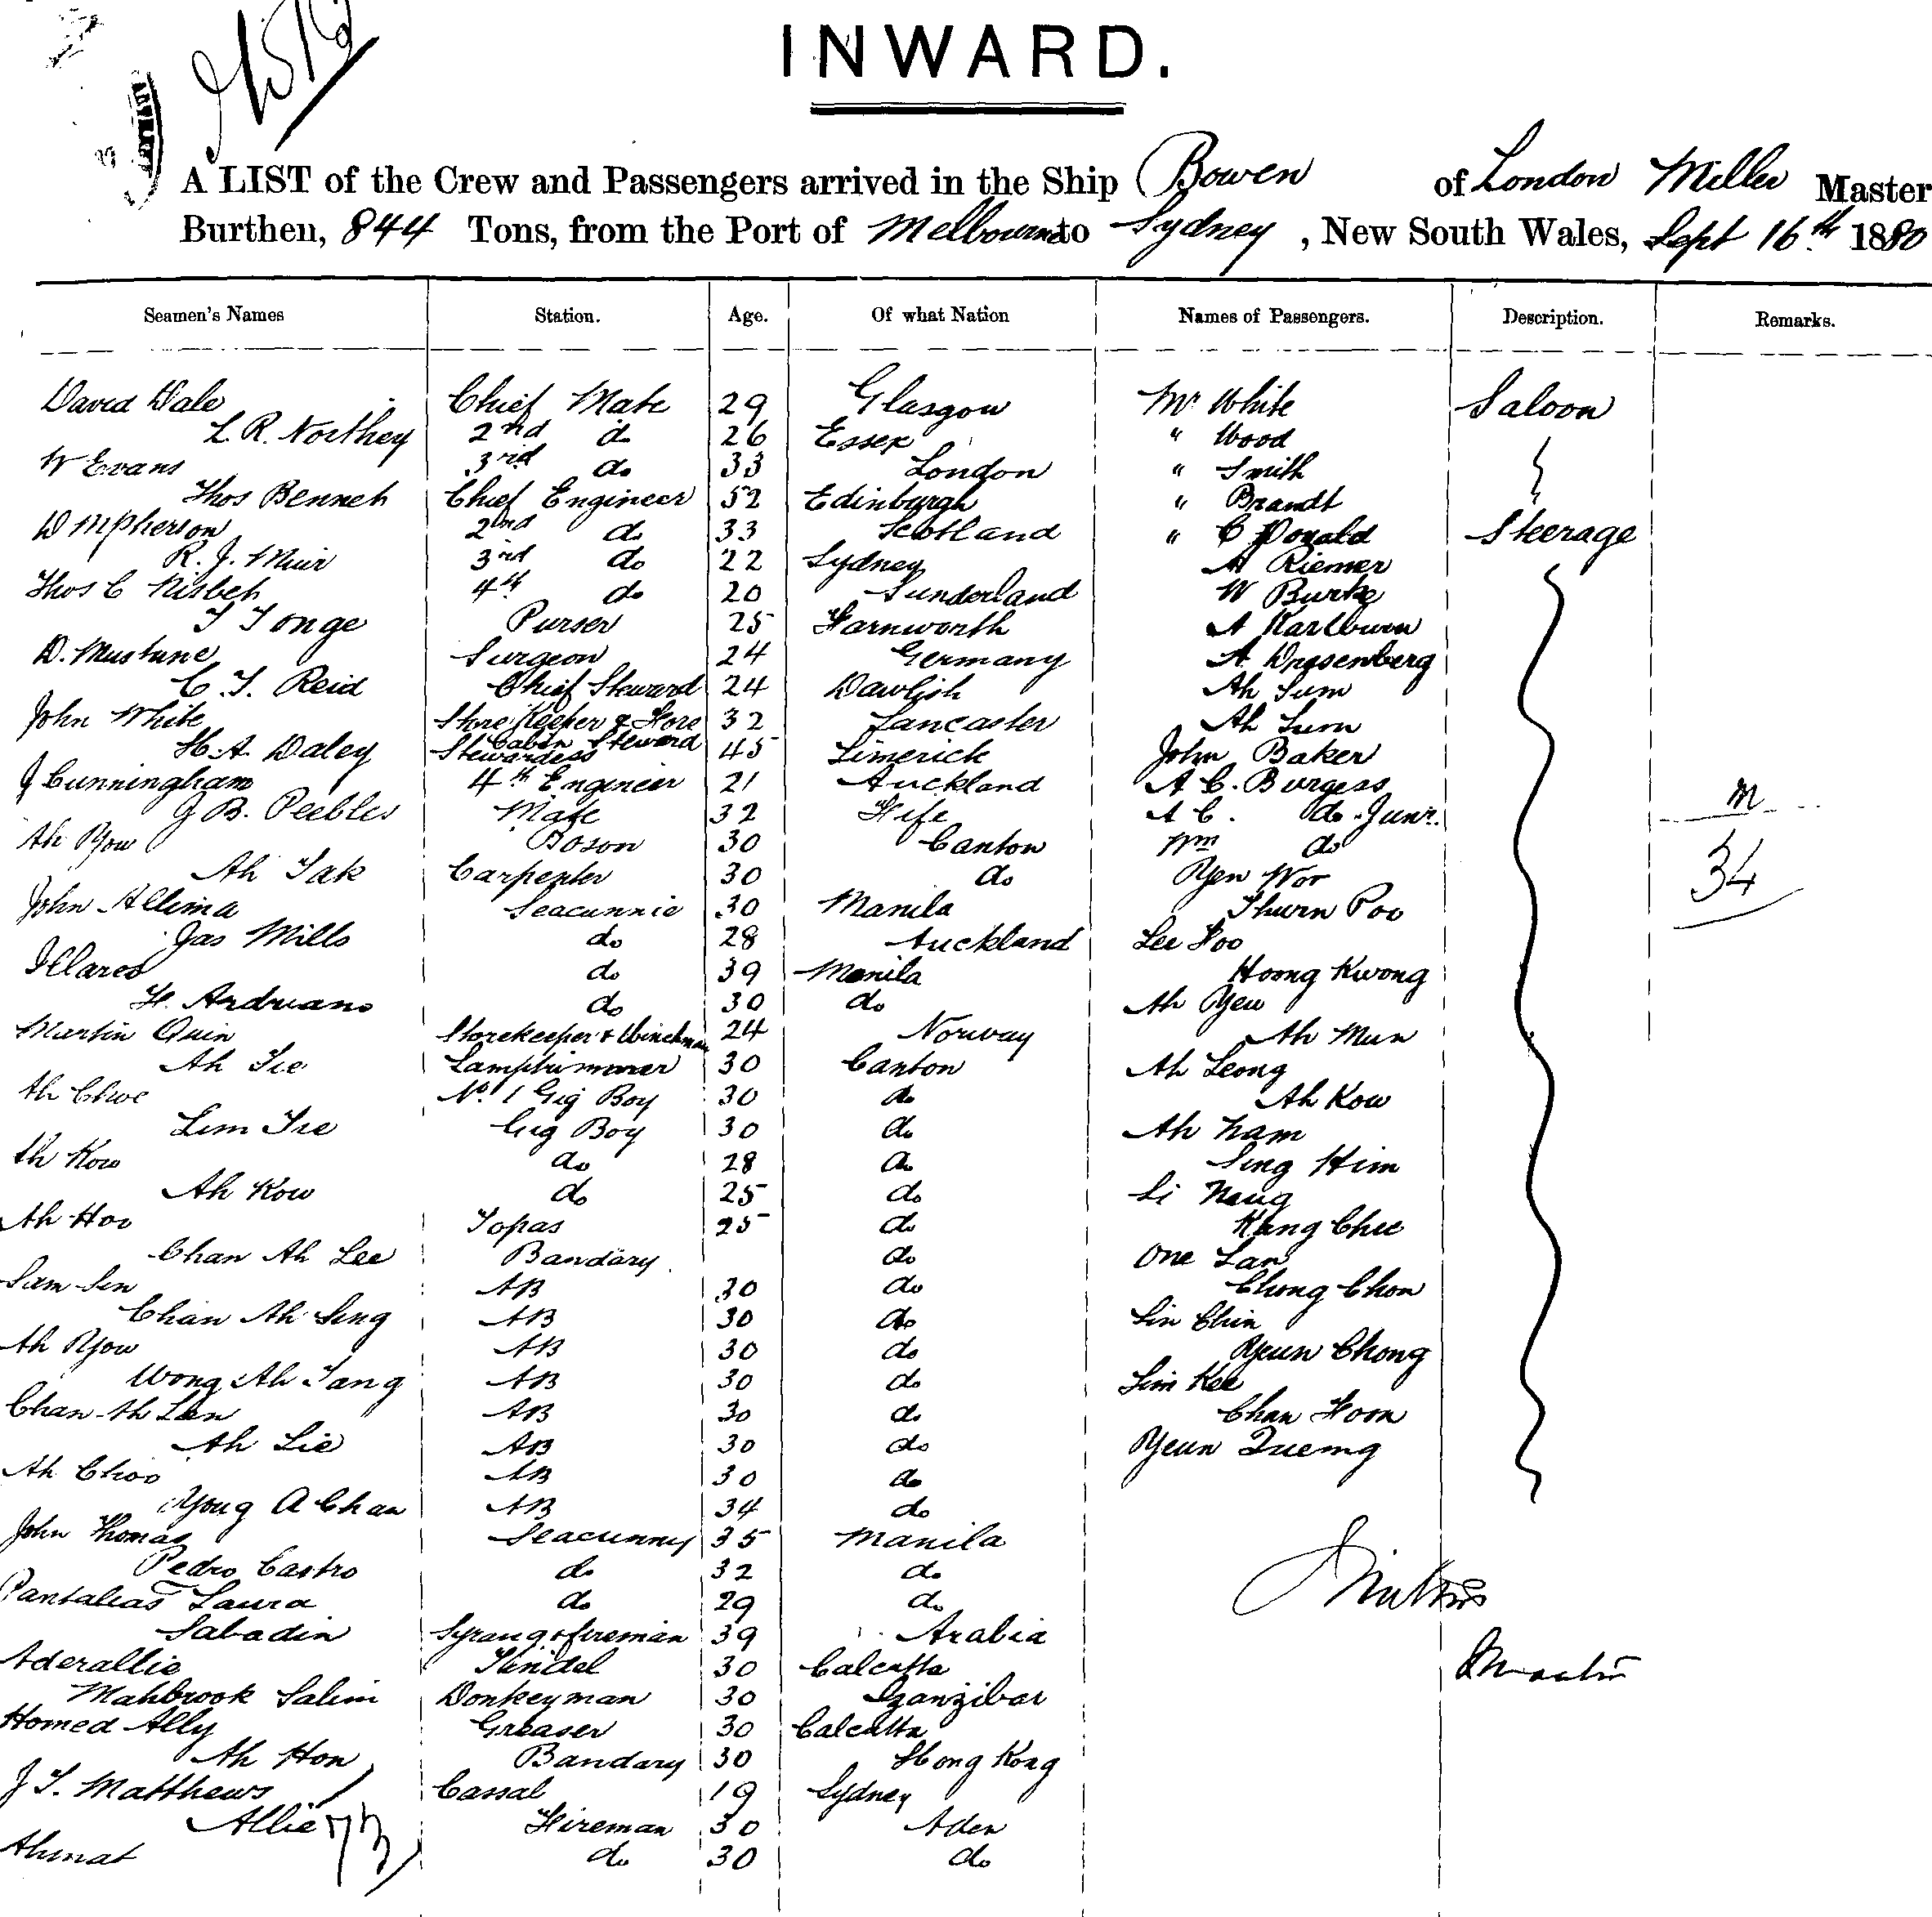 INWARD.
A LIST of the Crew and Passengers arrived in the Ship Bowen of London Miller Master
Burthen, 844 Tons, from the Port of Melbourne to Sydney, New South Wales, Sept 16th 1880
Seamen's Names Station. Age. Of what Nation Names of Passengers. Description. Remarks.
David Dale Chief Mate 29 Glasgow Mr White Saloon
L. R. Northey 2nd do 26 Essex " Wood
W Evans 3rd do 33 London " Smith
Thos Bennet Chief Engineer 52 Edinburgh " Brandt
D McPherson 2nd do 33 Scotland " C Donald Steerage
R. J. Muir 3rd do 22 Sydney A Riemer
Thos C Nisbet 4th do 20 Sunderland W Burke
T Tonge Purser 25 Farnworth A
D. Surgeon 24 Germany A.
C. T. Reid Chief Steward 24 Dawlish Ah Sum
John White Store Keeper & Fore Cabin Steward 32 Lancaster Ah Sum
H. A. Daley Stewardess 45 Limerick John Baker
J Cunningham 4th Engineer 21 Auckland A C. Burgess
J B. Peebles Mate 32 Fife A C. do Junr. m
Ah Yow Boson 30 Canton Wm do
Ah Tak Carpenter 30 do Yen Wor 34
John Allima Seacunnie 30 Manila Thurn Poo
Jas Mills do 28 Auckland Lee Foo
Illares do 39 Manila Hoong Kwong
F. Adruano do 30 do Ah Yew
Martin Quin Storekeeper & Winchman 24 Norway Ah Mun
Ah Sie Lamptrimmer 30 Canton Ah Leong
Ah Choe No. 1 Gig Boy 30 do Ah Kow
Lim Tre Gig Boy 30 do Ah Nam
Ah Kow do 28 do Sing Him
Ah Kow do 25 do Li
Ah Hoo Topas 25 do Kang Chee
Chan Ah Lee Bandary do One Lan
Sam Sen AB 30 do Chong Chon
Chan Ah Sing AB 30 do Sin Chin
Ah Yow AB 30 do Yeun Chong
Wong Ah Tang AB 30 do Sim Kee
Chan Ah Lan AB 30 do Chan Foon
Ah Lie AB 30 do Yeun
Ah Choo AB 30 do
Yong A Chan AB 34 do
John Thomas Seacunny 35 Manila
Pedro Castro do 32 do
Pantaleas Laura do 29 do
Sabadin Syrang & fireman 39 Arabia
Aderallie Tindel 30 Calcutta
Mahbrook Salim Donkeyman 30 Zanzibar
Homed Ally Greaser 30 Calcutta
Ah Hon Bandary 30 Hong Kong
J T. Matthews Cassal 19 Sydney
Allie Fireman 30 Aden
Ahmat do 30 do
73